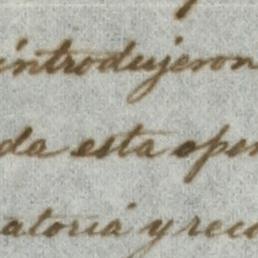 introdujeron
da esta oper
atoria y recu